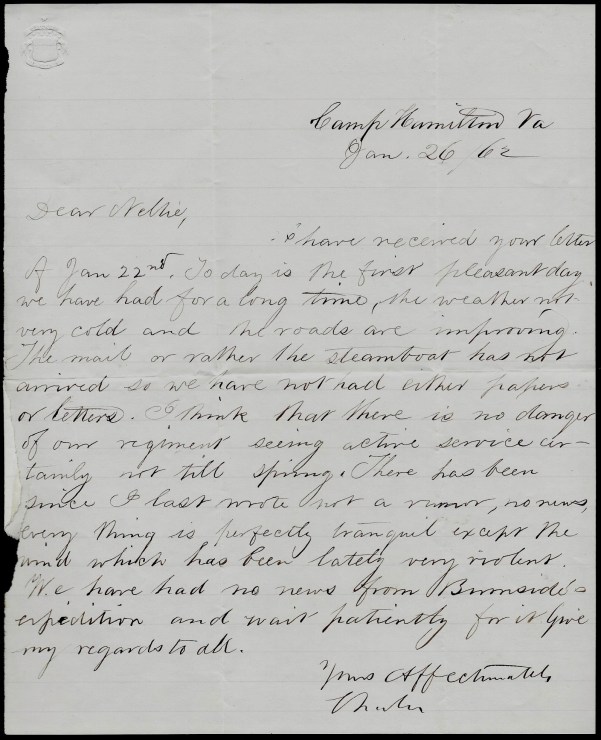 Camp Hamilton Va
Jan. 26 /62
Dear Nellie,
I have received your letter
of Jan 22nd. To day is the first pleasant day
we have had for a long time, the weather not
very cold and the roads are improving.
The mail or rather the steamboat has not
arrived so we have not had either papers
or letters. I think that there is no danger
of our regiment seeing active service cer-
tainly not till spring. There has been
since I last wrote not a rumor, no news,
every thing is perfectly tranquil except the
wind which has been lately very violent.
We have had no news from Burnside's
expedition and wait patiently for it Give
my regards to all.
Yours Affectionately
Charles